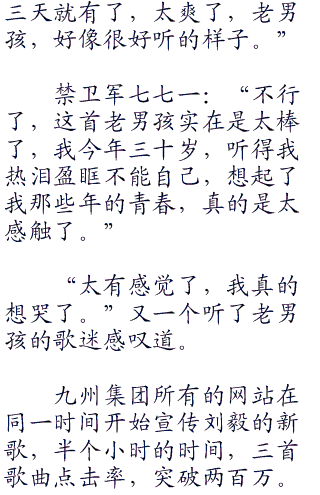 三天就有了，太爽了，老男
孩，好像很好听的样子。”
禁卫军七七一：“不行
了，这首老男孩实在是太棒
了，我今年三十岁，听得我
热泪盈眶不能自己，想起了
我那些年的青春，真的是太
感触了。”
“太有感觉了，我真的
想哭了。”又一个听了老男
孩的歌迷感叹道。
九州集团所有的网站在
同一时间开始宣传刘毅的新
歌，半个小时的时间，三首
歌曲点击率，突破两百万。